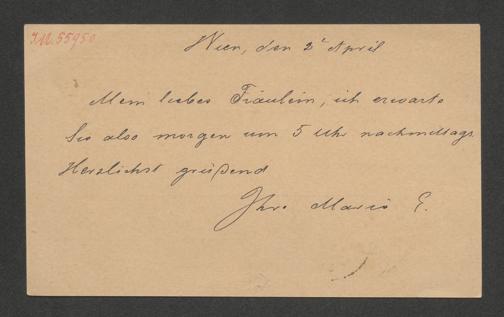 I.N. 55950
Wien, den 2ᵗ April
Mein liebes Fräulein, ich erwarte
Sie also morgen um 5 Uhr nachmittags
Herzlichst grüßend
Ihre Marie E.